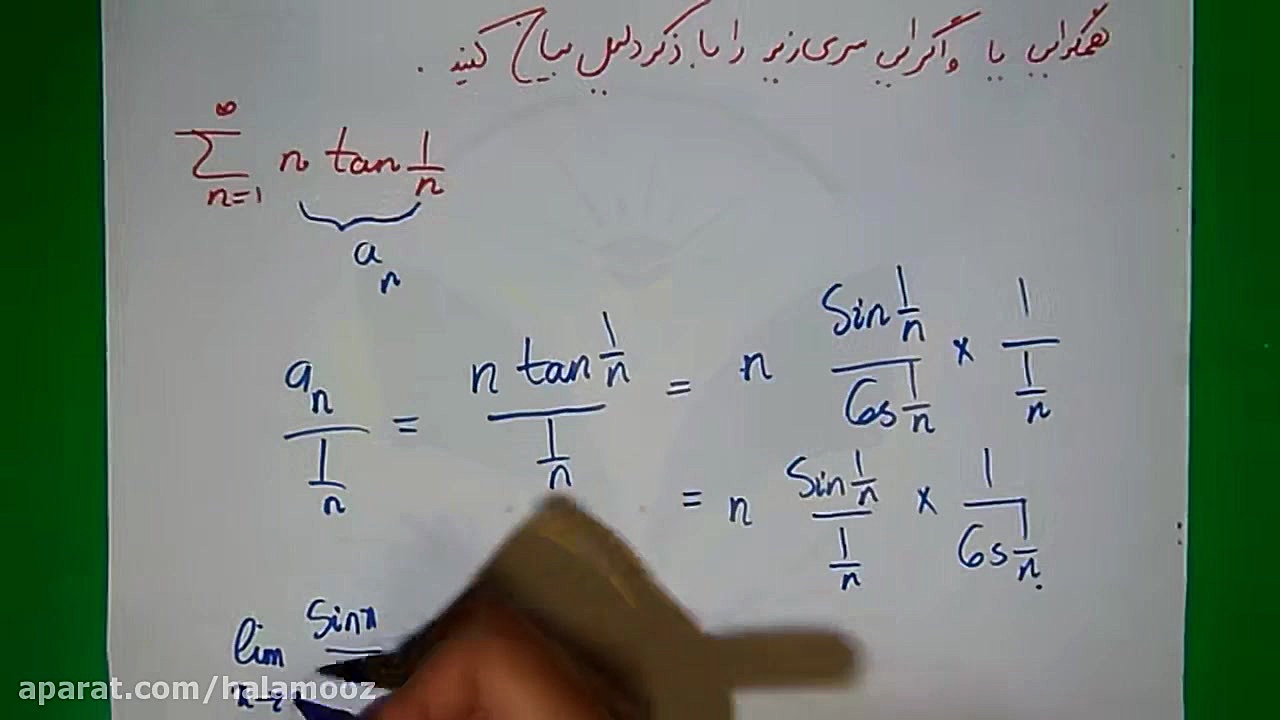 همگرایی یا واگرایی سری زیر را با ذکر دلیل مباح کنید .
∞
∑ n tan 1/n
n=1
a_n
a_n / (1/n) = n tan 1/n / (1/n) = n sin 1/n / Cos 1/n × 1 / (1/n)
= n Sin 1/n / (1/n) × 1 / Cos 1/n
lim Sin x
aparat.com/halamooz